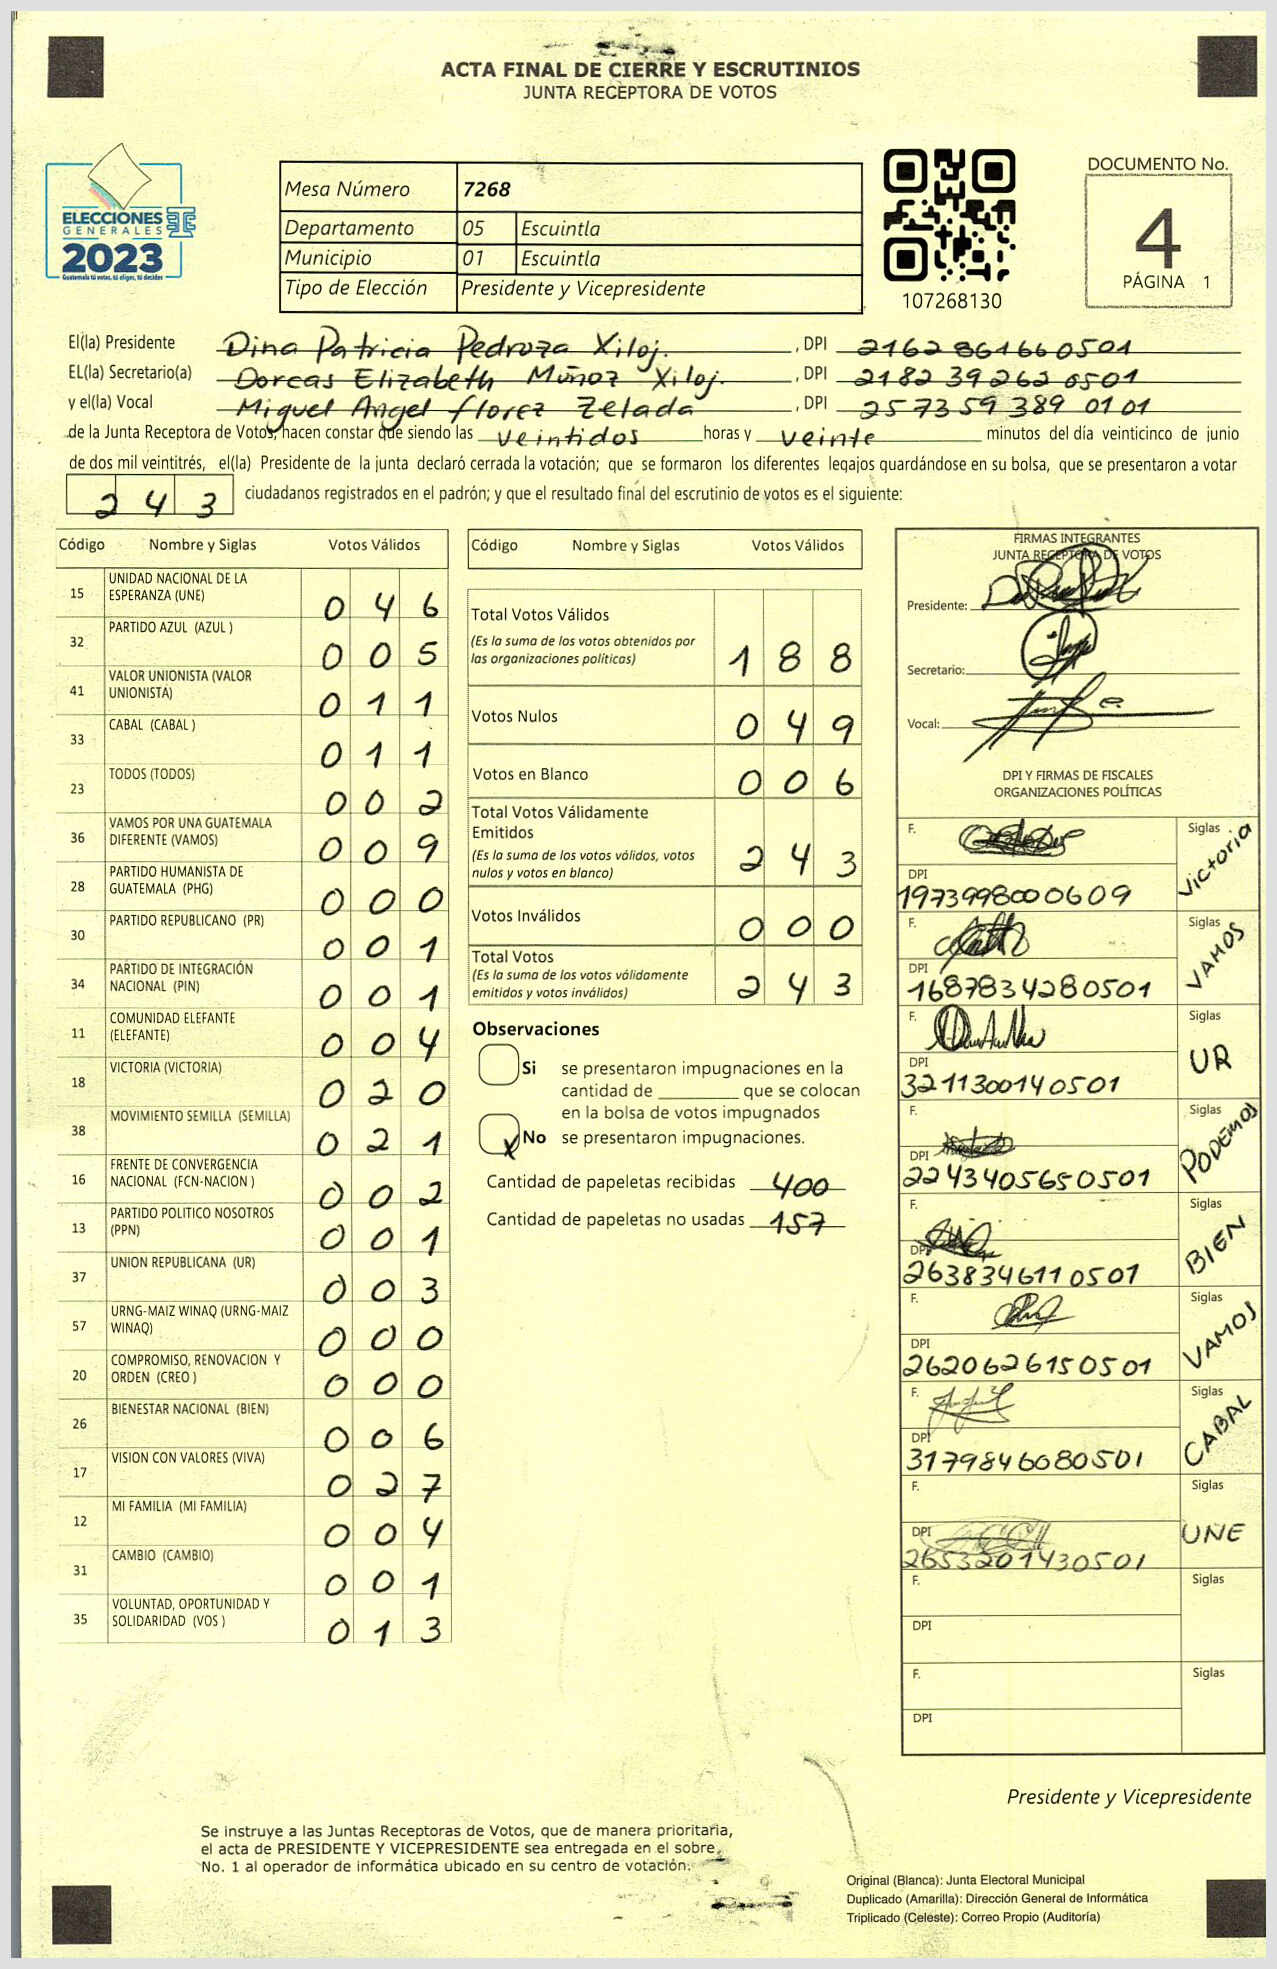 ACTA FINAL DE CIERRE Y ESCRUTINIOS
JUNTA RECEPTORA DE VOTOS
ELECCIONES
GENERALES
2023
Guatemala tú votas, tú eliges, tú decides
Mesa Número 7268
Departamento 05 Escuintla
Municipio 01 Escuintla
Tipo de Elección Presidente y Vicepresidente
107268130
DOCUMENTO No.
4
PÁGINA 1
El(la) Presidente Dina Patricia Pedroza Xiloj. , DPI 2162 861660501
EL(la) Secretario(a) Dorcas Elizabeth Muñoz Xiloj. , DPI 2182 39262 0501
y el(la) Vocal Miguel Angel florez Zelada , DPI 257359 389 0101
de la Junta Receptora de Votos, hacen constar que siendo las veintidos horas y veinte minutos del día veinticinco de junio
de dos mil veintitrés, el(la) Presidente de la junta declaró cerrada la votación; que se formaron los diferentes legajos guardándose en su bolsa, que se presentaron a votar
243 ciudadanos registrados en el padrón; y que el resultado final del escrutinio de votos es el siguiente:
Código Nombre y Siglas Votos Válidos
15 UNIDAD NACIONAL DE LA ESPERANZA (UNE) 046
32 PARTIDO AZUL (AZUL ) 005
41 VALOR UNIONISTA (VALOR UNIONISTA) 011
33 CABAL (CABAL ) 011
23 TODOS (TODOS) 002
36 VAMOS POR UNA GUATEMALA DIFERENTE (VAMOS) 009
28 PARTIDO HUMANISTA DE GUATEMALA (PHG) 000
30 PARTIDO REPUBLICANO (PR) 001
34 PARTIDO DE INTEGRACIÓN NACIONAL (PIN) 001
11 COMUNIDAD ELEFANTE (ELEFANTE) 004
18 VICTORIA (VICTORIA) 020
38 MOVIMIENTO SEMILLA (SEMILLA) 021
16 FRENTE DE CONVERGENCIA NACIONAL (FCN-NACION ) 002
13 PARTIDO POLITICO NOSOTROS (PPN) 001
37 UNION REPUBLICANA (UR) 003
57 URNG-MAIZ WINAQ (URNG-MAIZ WINAQ) 000
20 COMPROMISO, RENOVACION Y ORDEN (CREO ) 000
26 BIENESTAR NACIONAL (BIEN) 006
17 VISION CON VALORES (VIVA) 027
12 MI FAMILIA (MI FAMILIA) 004
31 CAMBIO (CAMBIO) 001
35 VOLUNTAD, OPORTUNIDAD Y SOLIDARIDAD (VOS ) 013
Código Nombre y Siglas Votos Válidos
Total Votos Válidos 188
(Es la suma de los votos obtenidos por
las organizaciones políticas)
Votos Nulos 049
Votos en Blanco 006
Total Votos Válidamente
Emitidos 243
(Es la suma de los votos válidos, votos
nulos y votos en blanco)
Votos Inválidos 000
Total Votos 243
(Es la suma de los votos válidamente
emitidos y votos inválidos)
Observaciones
Si se presentaron impugnaciones en la
cantidad de que se colocan
en la bolsa de votos impugnados
X No se presentaron impugnaciones.
Cantidad de papeletas recibidas 400
Cantidad de papeletas no usadas 157
FIRMAS INTEGRANTES
JUNTA RECEPTORA DE VOTOS
Presidente:
Secretario:
Vocal:
DPI Y FIRMAS DE FISCALES
ORGANIZACIONES POLÍTICAS
F. Siglas Victoria
DPI 1973998000609
F. Siglas VAMOS
DPI 1687834280501
F. Siglas UR
DPI 3211300140501
F. Siglas PODEMOS
DPI 2243405650501
F. Siglas BIEN
DPI 2638346110501
F. Siglas VAMOS
DPI 2620626150501
F. Siglas CABAL
DPI 3179846080501
F. Siglas UNE
DPI 2653201430501
F. Siglas
DPI
F. Siglas
DPI
Presidente y Vicepresidente
Se instruye a las Juntas Receptoras de Votos, que de manera prioritaria,
el acta de PRESIDENTE Y VICEPRESIDENTE sea entregada en el sobre
No. 1 al operador de informática ubicado en su centro de votación.
Original (Blanca): Junta Electoral Municipal
Duplicado (Amarilla): Dirección General de Informática
Triplicado (Celeste): Correo Propio (Auditoría)